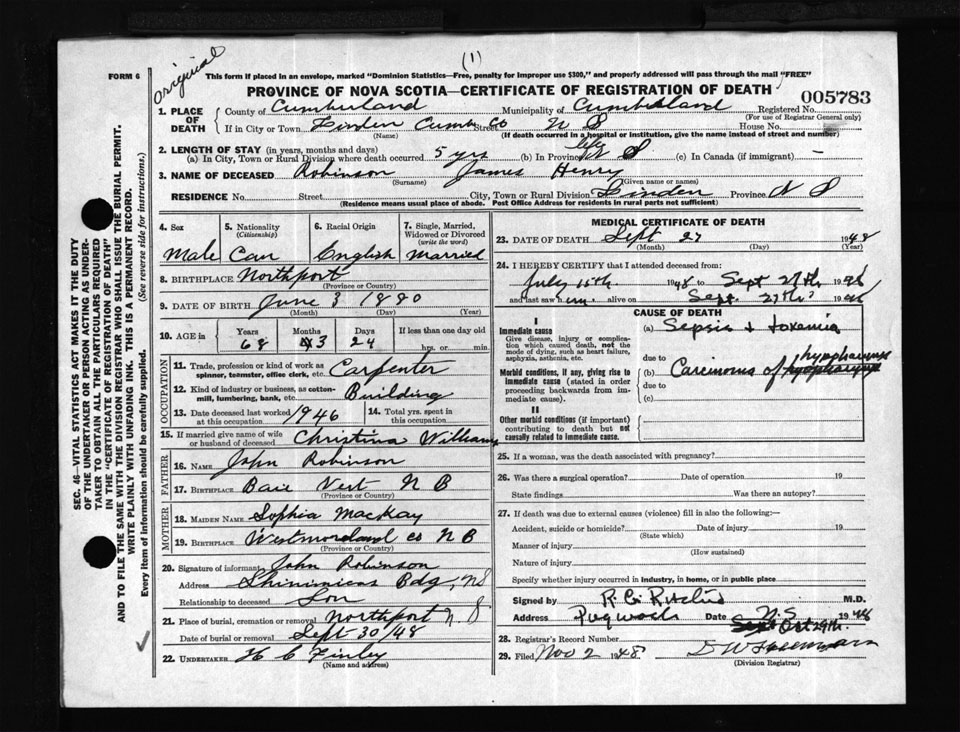 (1)
original
FORM 6
This form if placed in an envelope, marked "Dominion Statistics—Free, penalty for improper use $300," and properly addressed will pass through the mail "FREE"
PROVINCE OF NOVA SCOTIA—CERTIFICATE OF REGISTRATION OF DEATH
005783
1. PLACE OF DEATH
County of Cumberland Municipality of Cumberland Registered No.
(For use of Registrar General only)
If in City or Town Linden Cumb Co Street N S House No.
(Name) (If death occurred in a hospital or institution, give the name instead of street and number)
2. LENGTH OF STAY (in years, months and days)
(a) In City, Town or Rural Division where death occurred 5 yrs (b) In Province life N S (c) In Canada (if immigrant) —
3. NAME OF DECEASED Robinson James Henry
(Surname) (Given name or names)
RESIDENCE No. Street City, Town or Rural Division Linden Province N S
(Residence means usual place of abode. Post Office Address for residents in rural parts not sufficient)
4. Sex
Male
5. Nationality
(Citizenship)
Can
6. Racial Origin
English
7. Single, Married, Widowed or Divorced
(write the word)
Married
8. BIRTHPLACE Northport
(Province or Country)
9. DATE OF BIRTH June 3 1880
(Month) (Day) (Year)
10. AGE in
Years Months Days If less than one day old
68 3 24 hrs. or min.
OCCUPATION
11. Trade, profession or kind of work as spinner, teamster, office clerk, etc. Carpenter
12. Kind of industry or business, as cotton-mill, lumbering, bank, etc. Building
13. Date deceased last worked at this occupation 1946 14. Total yrs. spent in this occupation
15. If married give name of wife or husband of deceased Christina Williams
FATHER
16. NAME John Robinson
17. BIRTHPLACE Baie Vert N B
(Province or Country)
MOTHER
18. MAIDEN NAME Sophia MacKay
19. BIRTHPLACE Westmorland co N B
(Province or Country)
20. Signature of informant John Robinson
Address Shinimicas Bdg, NS
Relationship to deceased Son
21. Place of burial, cremation or removal Northport N S
Date of burial or removal Sept-30/48
22. UNDERTAKER H C Finley
(Name and address)
MEDICAL CERTIFICATE OF DEATH
23. DATE OF DEATH Sept 27 1948
(Month) (Day) (Year)
24. I HEREBY CERTIFY that I attended deceased from:
July 15th 1948 to Sept 27th 1948
and last saw him alive on Sept. 27th 1948
CAUSE OF DEATH
I
Immediate cause
Give disease, injury or complication which caused death, not the mode of dying, such as heart failure, asphyxia, asthenia, etc.
(a) Sepsis & toxemia
due to
Morbid conditions, if any, giving rise to immediate cause (stated in order proceeding backwards from immediate cause).
(b) Carcinoma of hypopharynx
due to
(c)
II
Other morbid conditions (if important) contributing to death but not causally related to immediate cause.
25. If a woman, was the death associated with pregnancy?
26. Was there a surgical operation? Date of operation 19
State findings Was there an autopsy?
27. If death was due to external causes (violence) fill in also the following:—
Accident, suicide or homicide? Date of injury 19
(State which)
Manner of injury
(How sustained)
Nature of injury
Specify whether injury occurred in industry, in home, or in public place
Signed by R. G. Ritchie M.D.
Address Pugwash N.S. Date Oct 29th. 1948
28. Registrar's Record Number
29. Filed Nov 2 1948
(Division Registrar)
SEC. 46—VITAL STATISTICS ACT MAKES IT THE DUTY
OF THE UNDERTAKER OR PERSON ACTING AS UNDERTAKER TO OBTAIN ALL THE PARTICULARS REQUIRED
IN THE "CERTIFICATE OF REGISTRATION OF DEATH"
AND TO FILE THE SAME WITH THE DIVISION REGISTRAR WHO SHALL ISSUE THE BURIAL PERMIT.
WRITE PLAINLY WITH UNFADING INK. THIS IS A PERMANENT RECORD.
Every item of information should be carefully supplied. (See reverse side for instructions.)